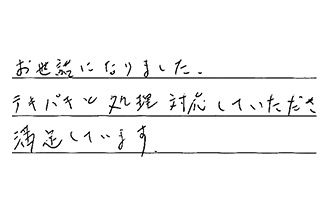 お世話になりました。
テキパキと処理対応していただき
満足しています.